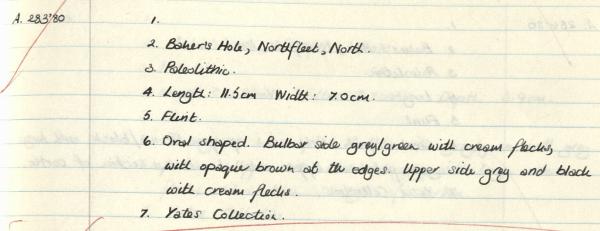 A. 283'80
1.
2. Baker's Hole, Northfleet, North.
3. Paleolithic.
4. Length: 11.5cm Width: 7.0cm.
5. Flint.
6. Oval shaped. Bulbar side grey/green with cream flecks,
with opaque brown at the edges. Upper side grey and black
with cream flecks.
7. Yates Collection.